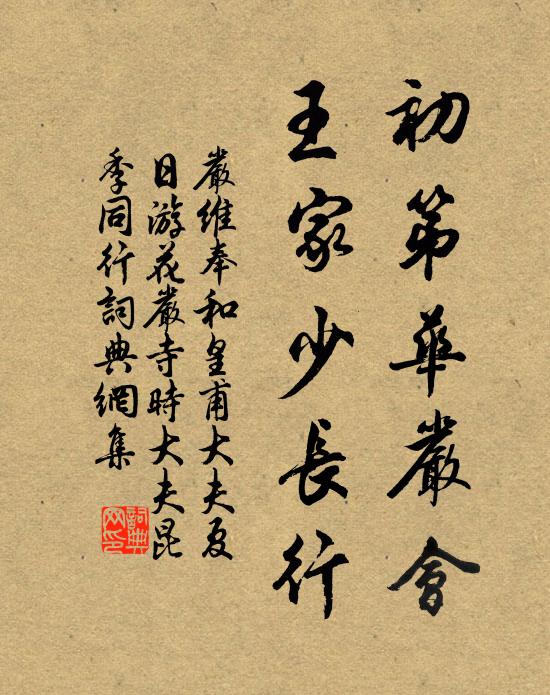 初第華嚴會
王家少長行
嚴維奉和皇甫大夫夏
日游花嚴寺時大夫昆
季同行詞典網集
詞典
网印